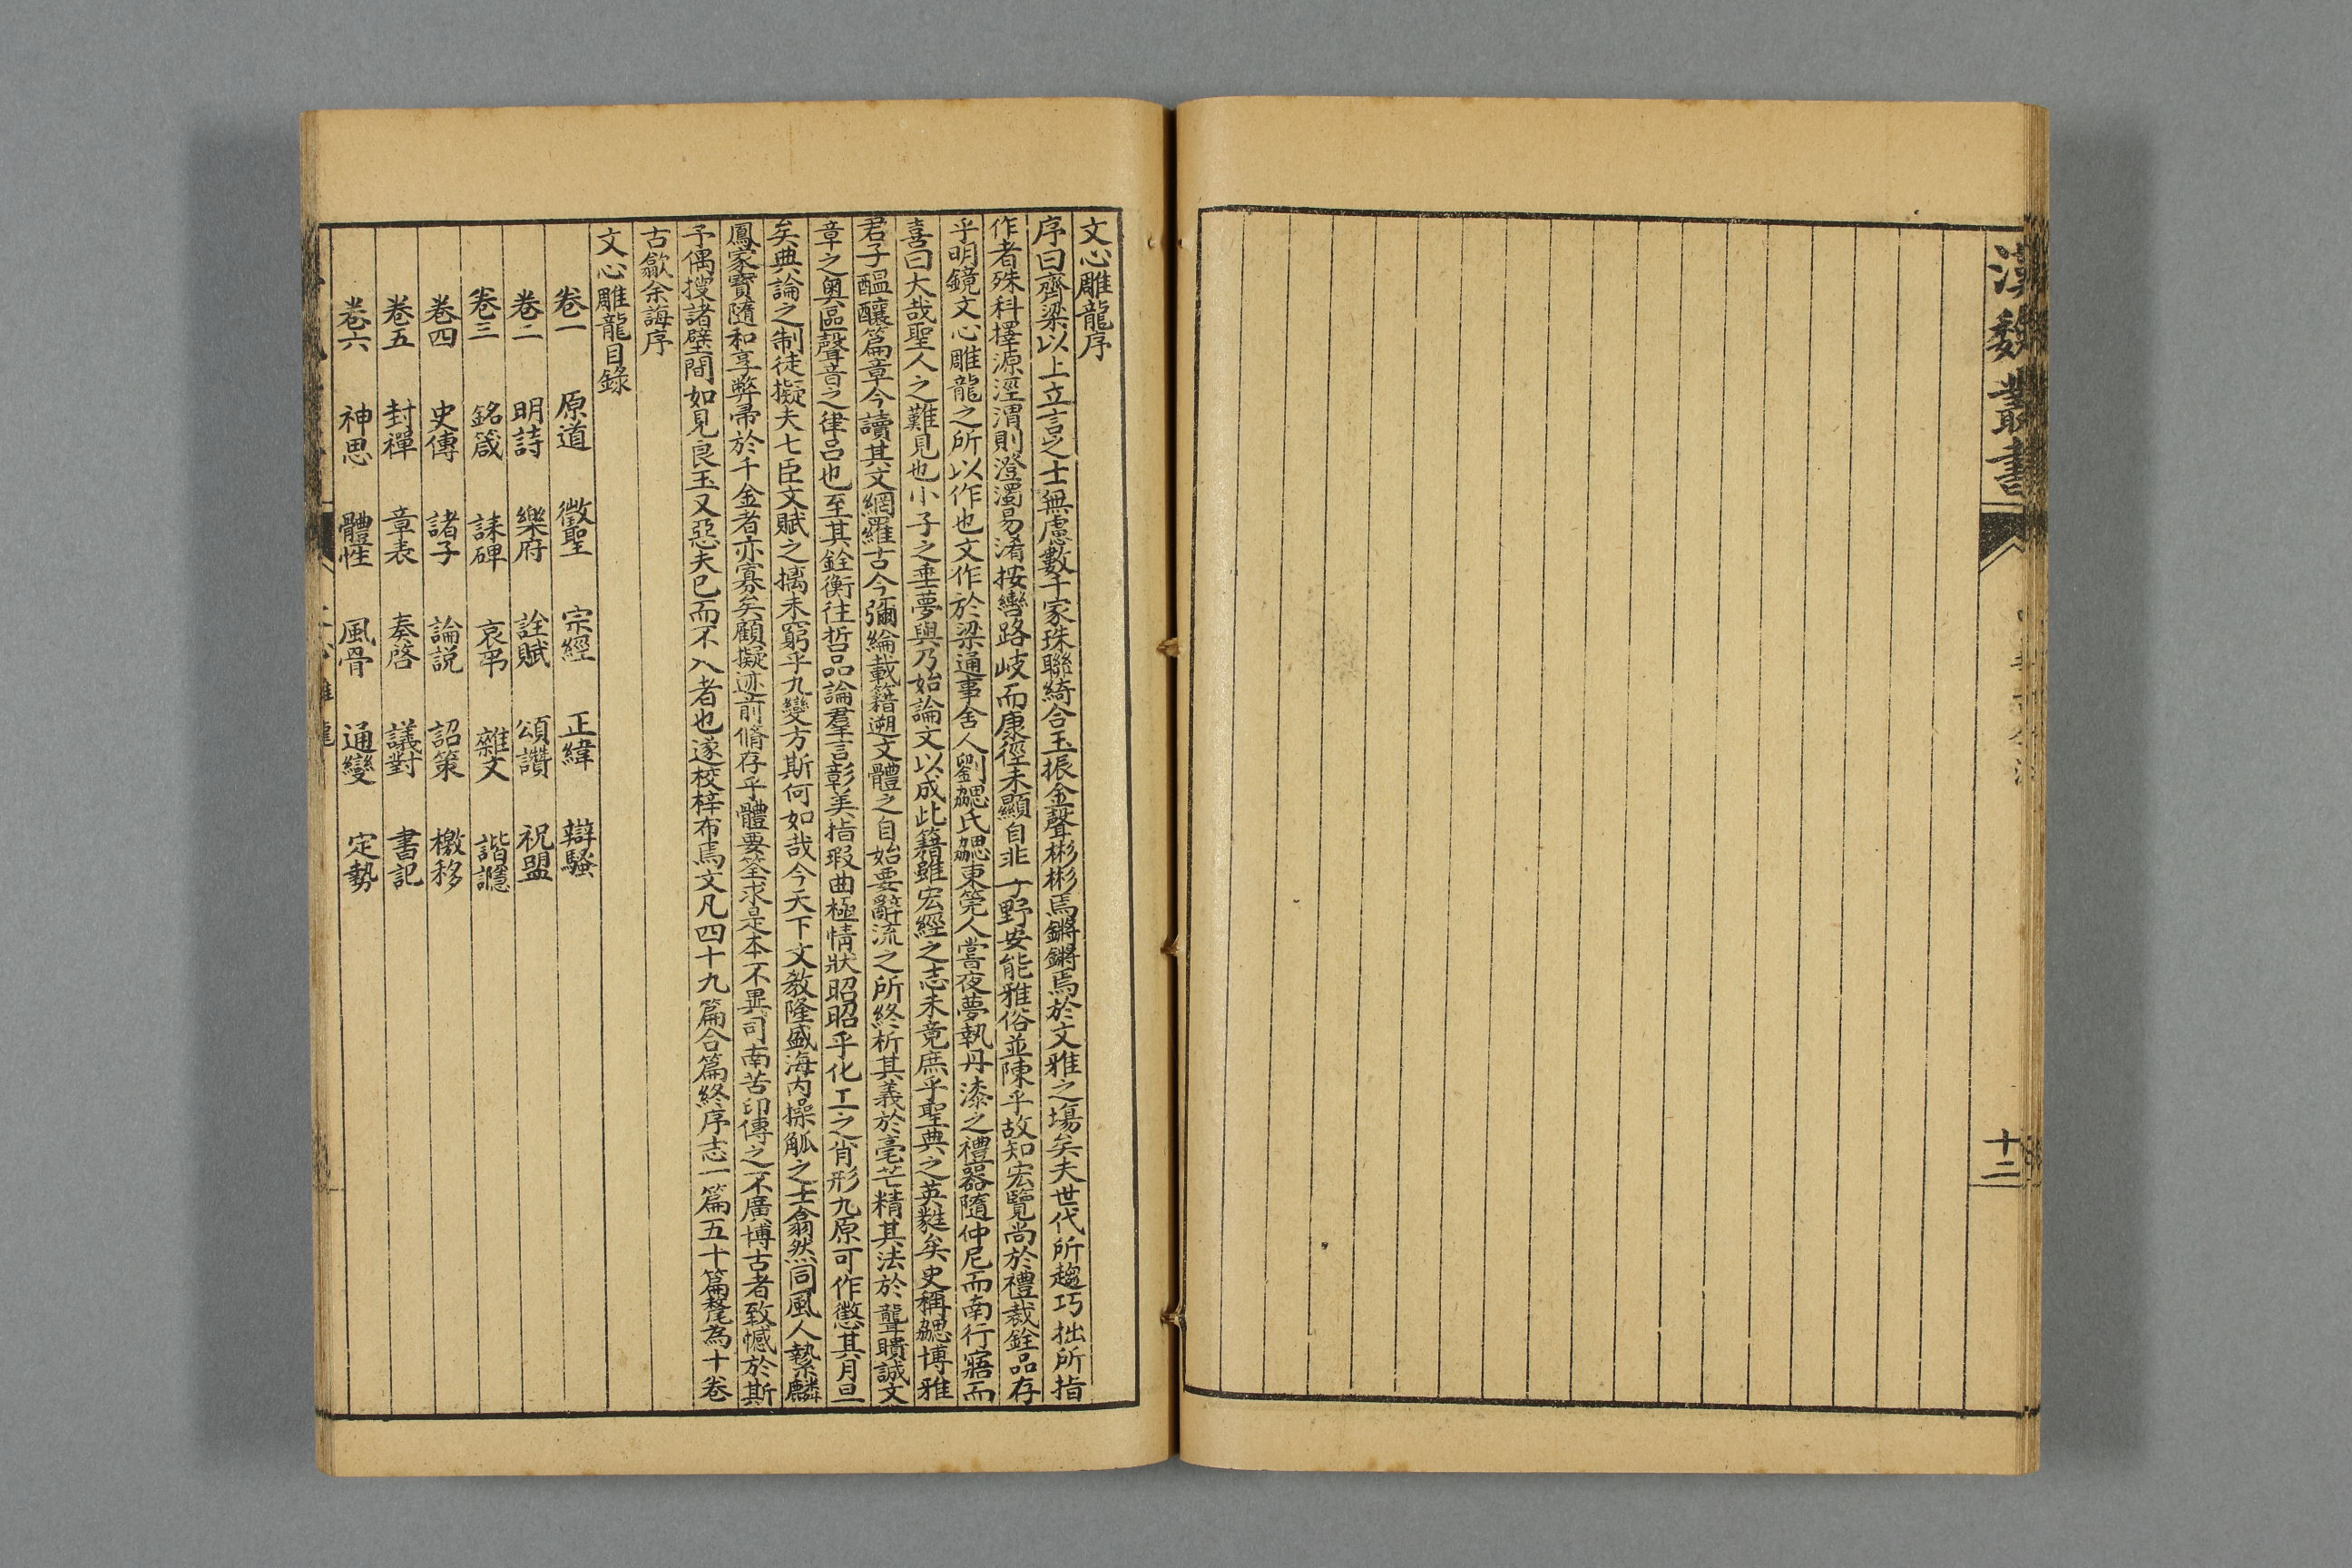 漢魏叢書
十二
文心雕龍序
序曰齊梁以上立言之士無慮數千家珠聯綺合玉振金聲彬彬焉鏘鏘焉於文雅之場矣夫世代所趨巧拙所指
作者殊科擇源涇渭則澄濁易淆按轡路岐而康徑未顯自非子野安能雅俗並陳乎故知宏覽尚於禮裁銓品存
乎明鏡文心雕龍之所以作也文作於梁通事舍人劉勰氏勰東筦人嘗夜夢執丹漆之禮器隨仲尼而南行寤而
喜曰大哉聖人之難見也小子之垂夢與乃始論文以成此籍雖宏經之志未竟庶乎聖典之英蕤矣史稱勰博雅
君子醞釀篇章今讀其文網羅古今彌綸載籍遡文體之自始要辭流之所終析其義於毫芒精其法於聾聵誠文
章之奧區聲音之律呂也至其銓衡往哲品論羣言彰美指瑕曲極情狀昭昭乎化工之肖形九原可作懲其月旦
矣典論之制徒擬夫七臣文賦之摛未窮乎九變方斯何如哉今天下文教隆盛海内操觚之士翕然同風人縶麟
鳳家寶隨和享弊帚於千金者亦寡矣顧擬迹前脩存乎體要筌求是本不異司南苦印傳之不廣博古者致憾於斯
予偶搜諸壁間如見良玉又惡夫已而不入者也遂校梓布焉文凡四十九篇合篇終序志一篇五十篇釐為十卷
古歙余誨序
文心雕龍目錄
卷一 原道 徵聖 宗經 正緯 辯騷
卷二 明詩 樂府 詮賦 頌讚 祝盟
卷三 銘箴 誄碑 哀弔 雜文 諧讔
卷四 史傳 諸子 論説 詔策 檄移
卷五 封禪 章表 奏啓 議對 書記
卷六 神思 體性 風骨 通變 定勢